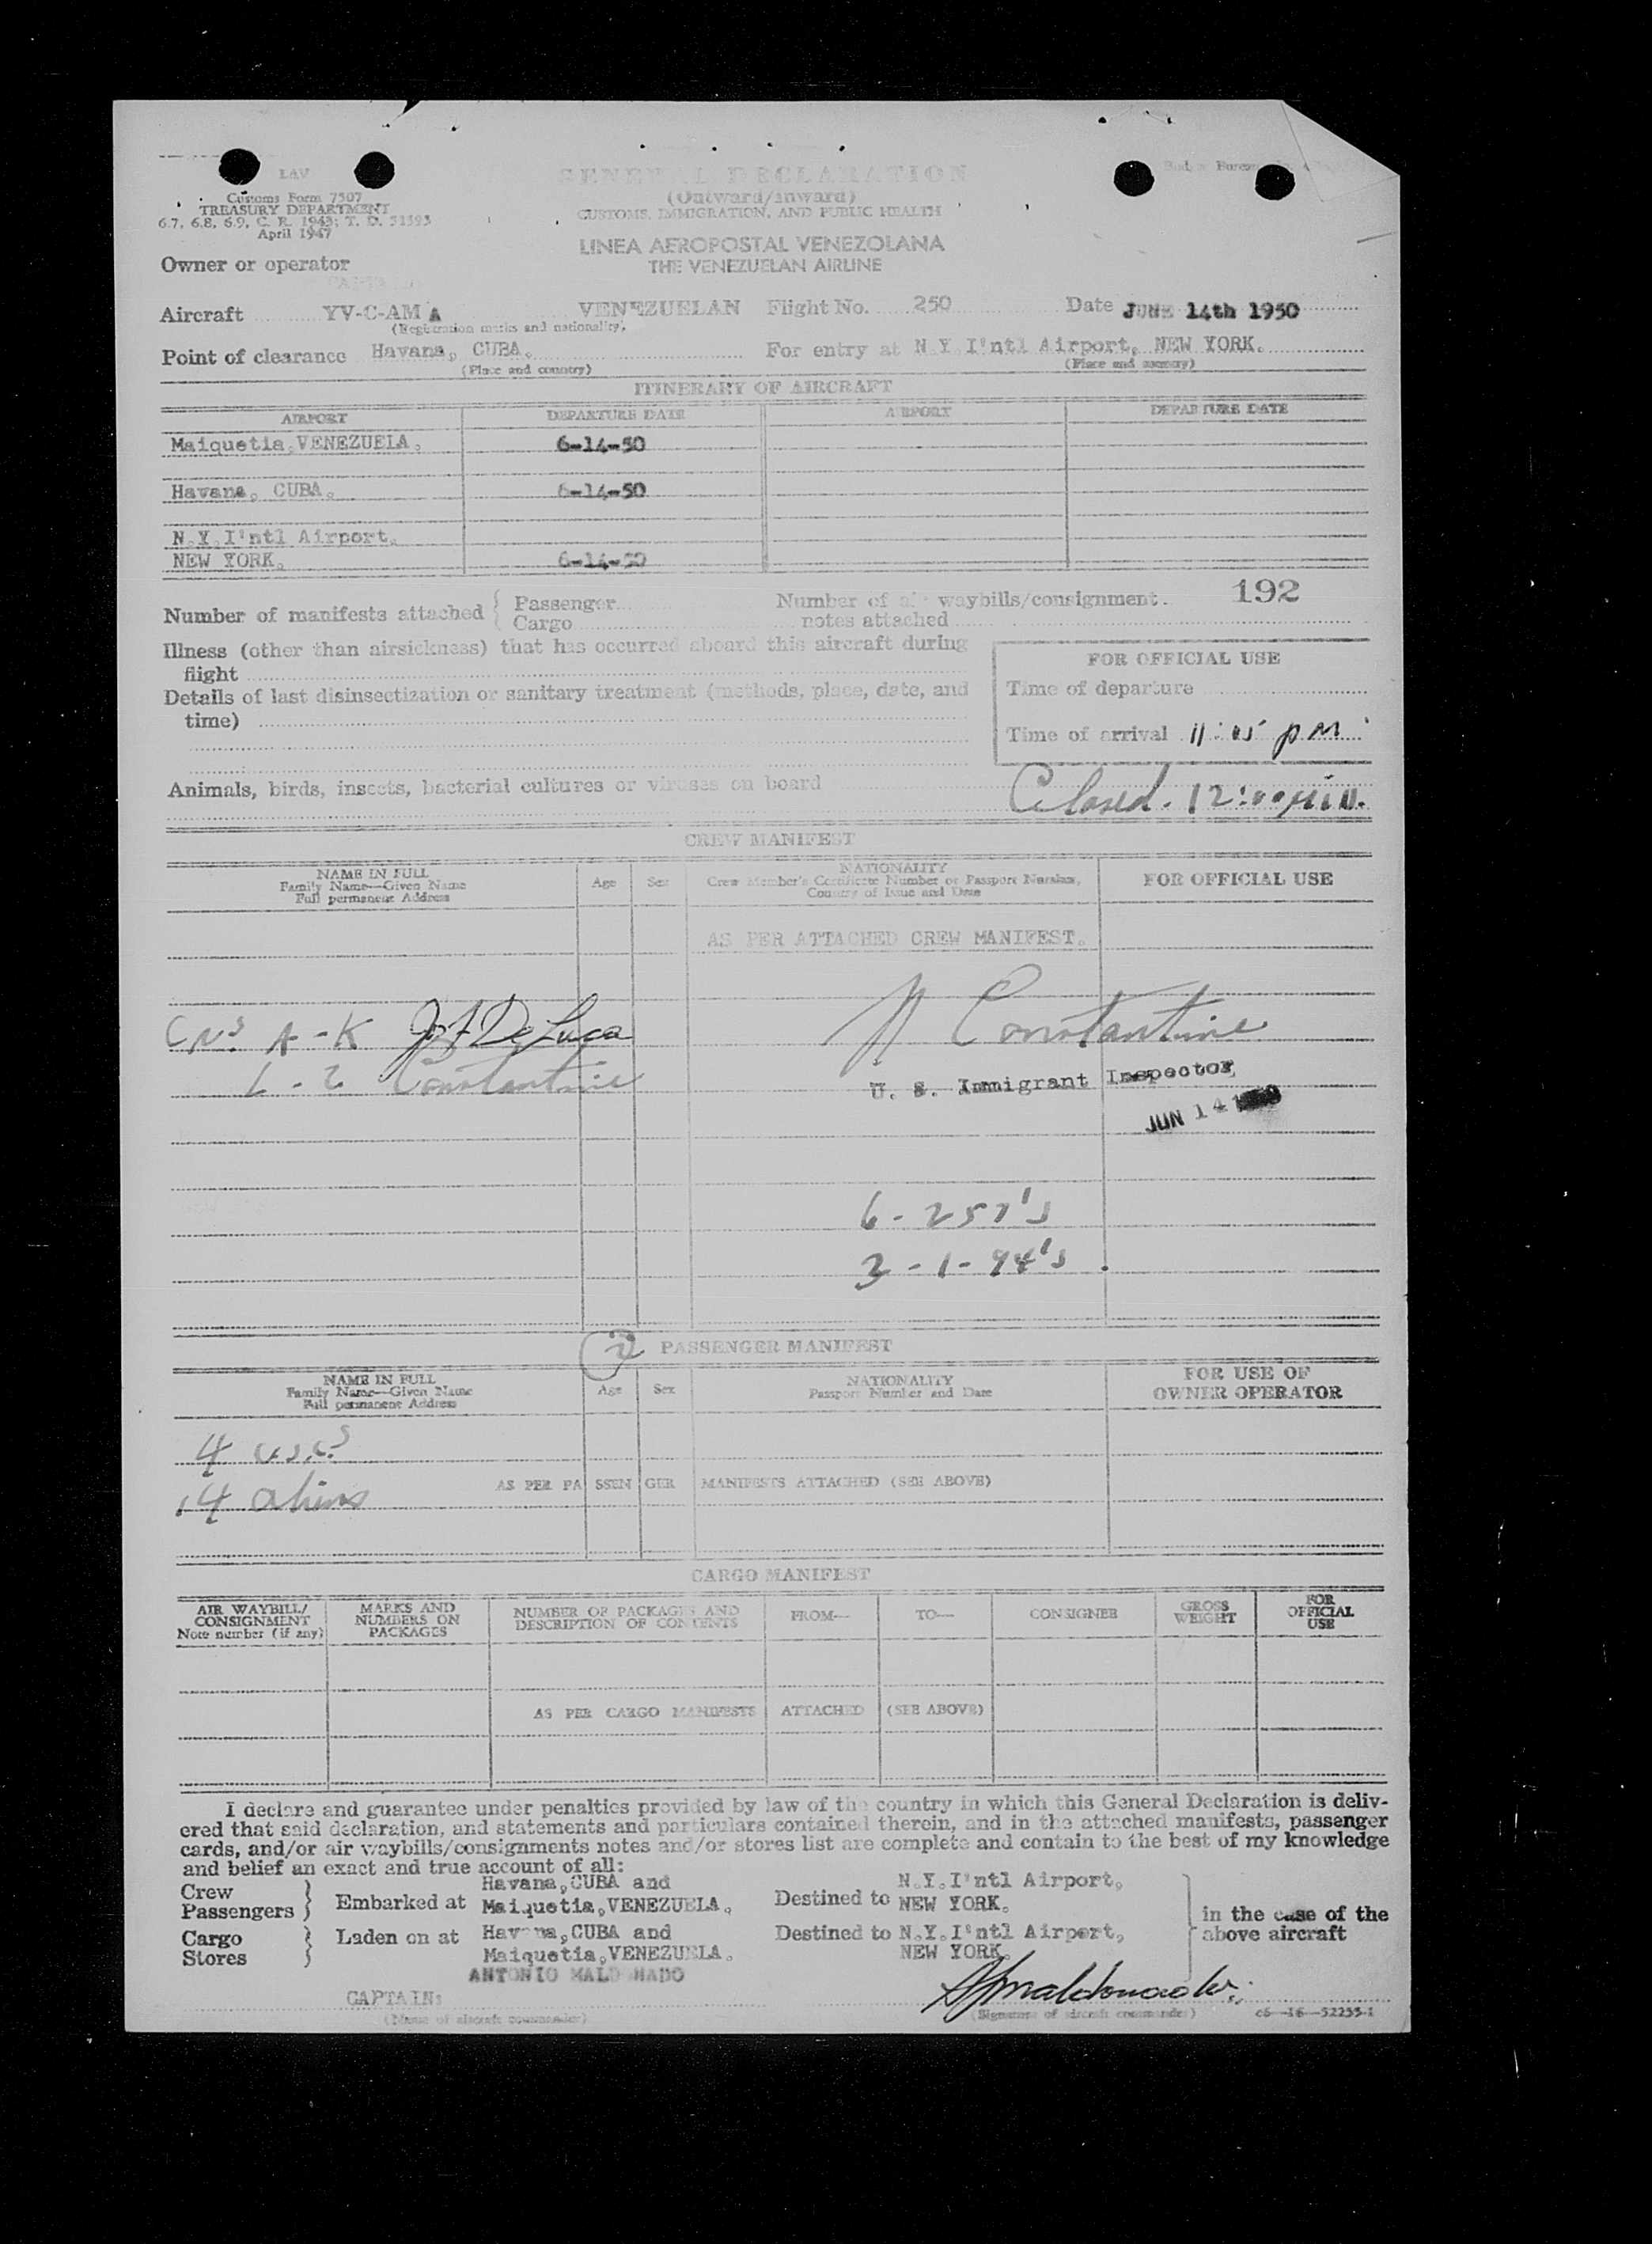 LAV
Customs Form 7507
TREASURY DEPARTMENT
6.7, 6.8, 6.9, C. R. 1943; T. D. 51593
April 1947
GENERAL DECLARATION
(Outward/Inward)
CUSTOMS, IMMIGRATION, AND PUBLIC HEALTH
LINEA AEROPOSTAL VENEZOLANA
THE VENEZUELAN AIRLINE
Owner or operator
Aircraft YV-C-AMA VENEZUELAN Flight No. 250 Date JUNE 14th 1950
(Registration marks and nationality)
Point of clearance Havana, CUBA. For entry at N.Y.I'ntl Airport, NEW YORK.
(Place and country) (Place and country)
ITINERARY OF AIRCRAFT
AIRPORT DEPARTURE DATE AIRPORT DEPARTURE DATE
Maiquetia,VENEZUELA. 6-14-50
Havana, CUBA. 6-14-50
N.Y.I'ntl Airport.
NEW YORK. 6-14-50
192
Number of manifests attached { Passenger Number of air waybills/consignment
Cargo notes attached
Illness (other than airsickness) that has occurred aboard this aircraft during
flight
Details of last disinsectization or sanitary treatment (methods, place, date, and
time)
FOR OFFICIAL USE
Time of departure
Time of arrival pM
Animals, birds, insects, bacterial cultures or viruses on board
Closed. 12:00
CREW MANIFEST
NAME IN FULL
Family Name—Given Name
Full permanent Address
Age Sex
NATIONALITY
Crew Member's Certificate Number or Passport Number,
Country of Issue and Date
FOR OFFICIAL USE
AS PER ATTACHED CREW MANIFEST.
A-K De Luca
L-Z Constantine
Constantine
U. S. Immigrant Inspector
JUN 14 1950
6 - 257's
3 - 1-94's
2
PASSENGER MANIFEST
NAME IN FULL
Family Name—Given Name
Full permanent Address
Age Sex
NATIONALITY
Passport Number and Date
FOR USE OF
OWNER OPERATOR
4 USC's
14 aliens
AS PER PASSENGER MANIFESTS ATTACHED (SEE ABOVE)
CARGO MANIFEST
AIR WAYBILL/
CONSIGNMENT
Note number (if any)
MARKS AND
NUMBERS ON
PACKAGES
NUMBER OF PACKAGES AND
DESCRIPTION OF CONTENTS
FROM— TO— CONSIGNEE
GROSS
WEIGHT
FOR
OFFICIAL
USE
AS PER CARGO MANIFESTS ATTACHED (SEE ABOVE)
I declare and guarantee under penalties provided by law of the country in which this General Declaration is deliv-
ered that said declaration, and statements and particulars contained therein, and in the attached manifests, passenger
cards, and/or air waybills/consignments notes and/or stores list are complete and contain to the best of my knowledge
and belief an exact and true account of all:
Crew
Passengers } Embarked at Havana,CUBA and
Maiquetia,VENEZUELA. Destined to N.Y.I'ntl Airport,
NEW YORK.
Cargo
Stores } Laden on at Havana,CUBA and
Maiquetia,VENEZUELA. Destined to N.Y.I'ntl Airport,
NEW YORK.
in the case of the
above aircraft
ANTONIO MALDONADO
CAPTAIN:
(Name of aircraft commander) (Signature of aircraft commander) c6—16—52255-1